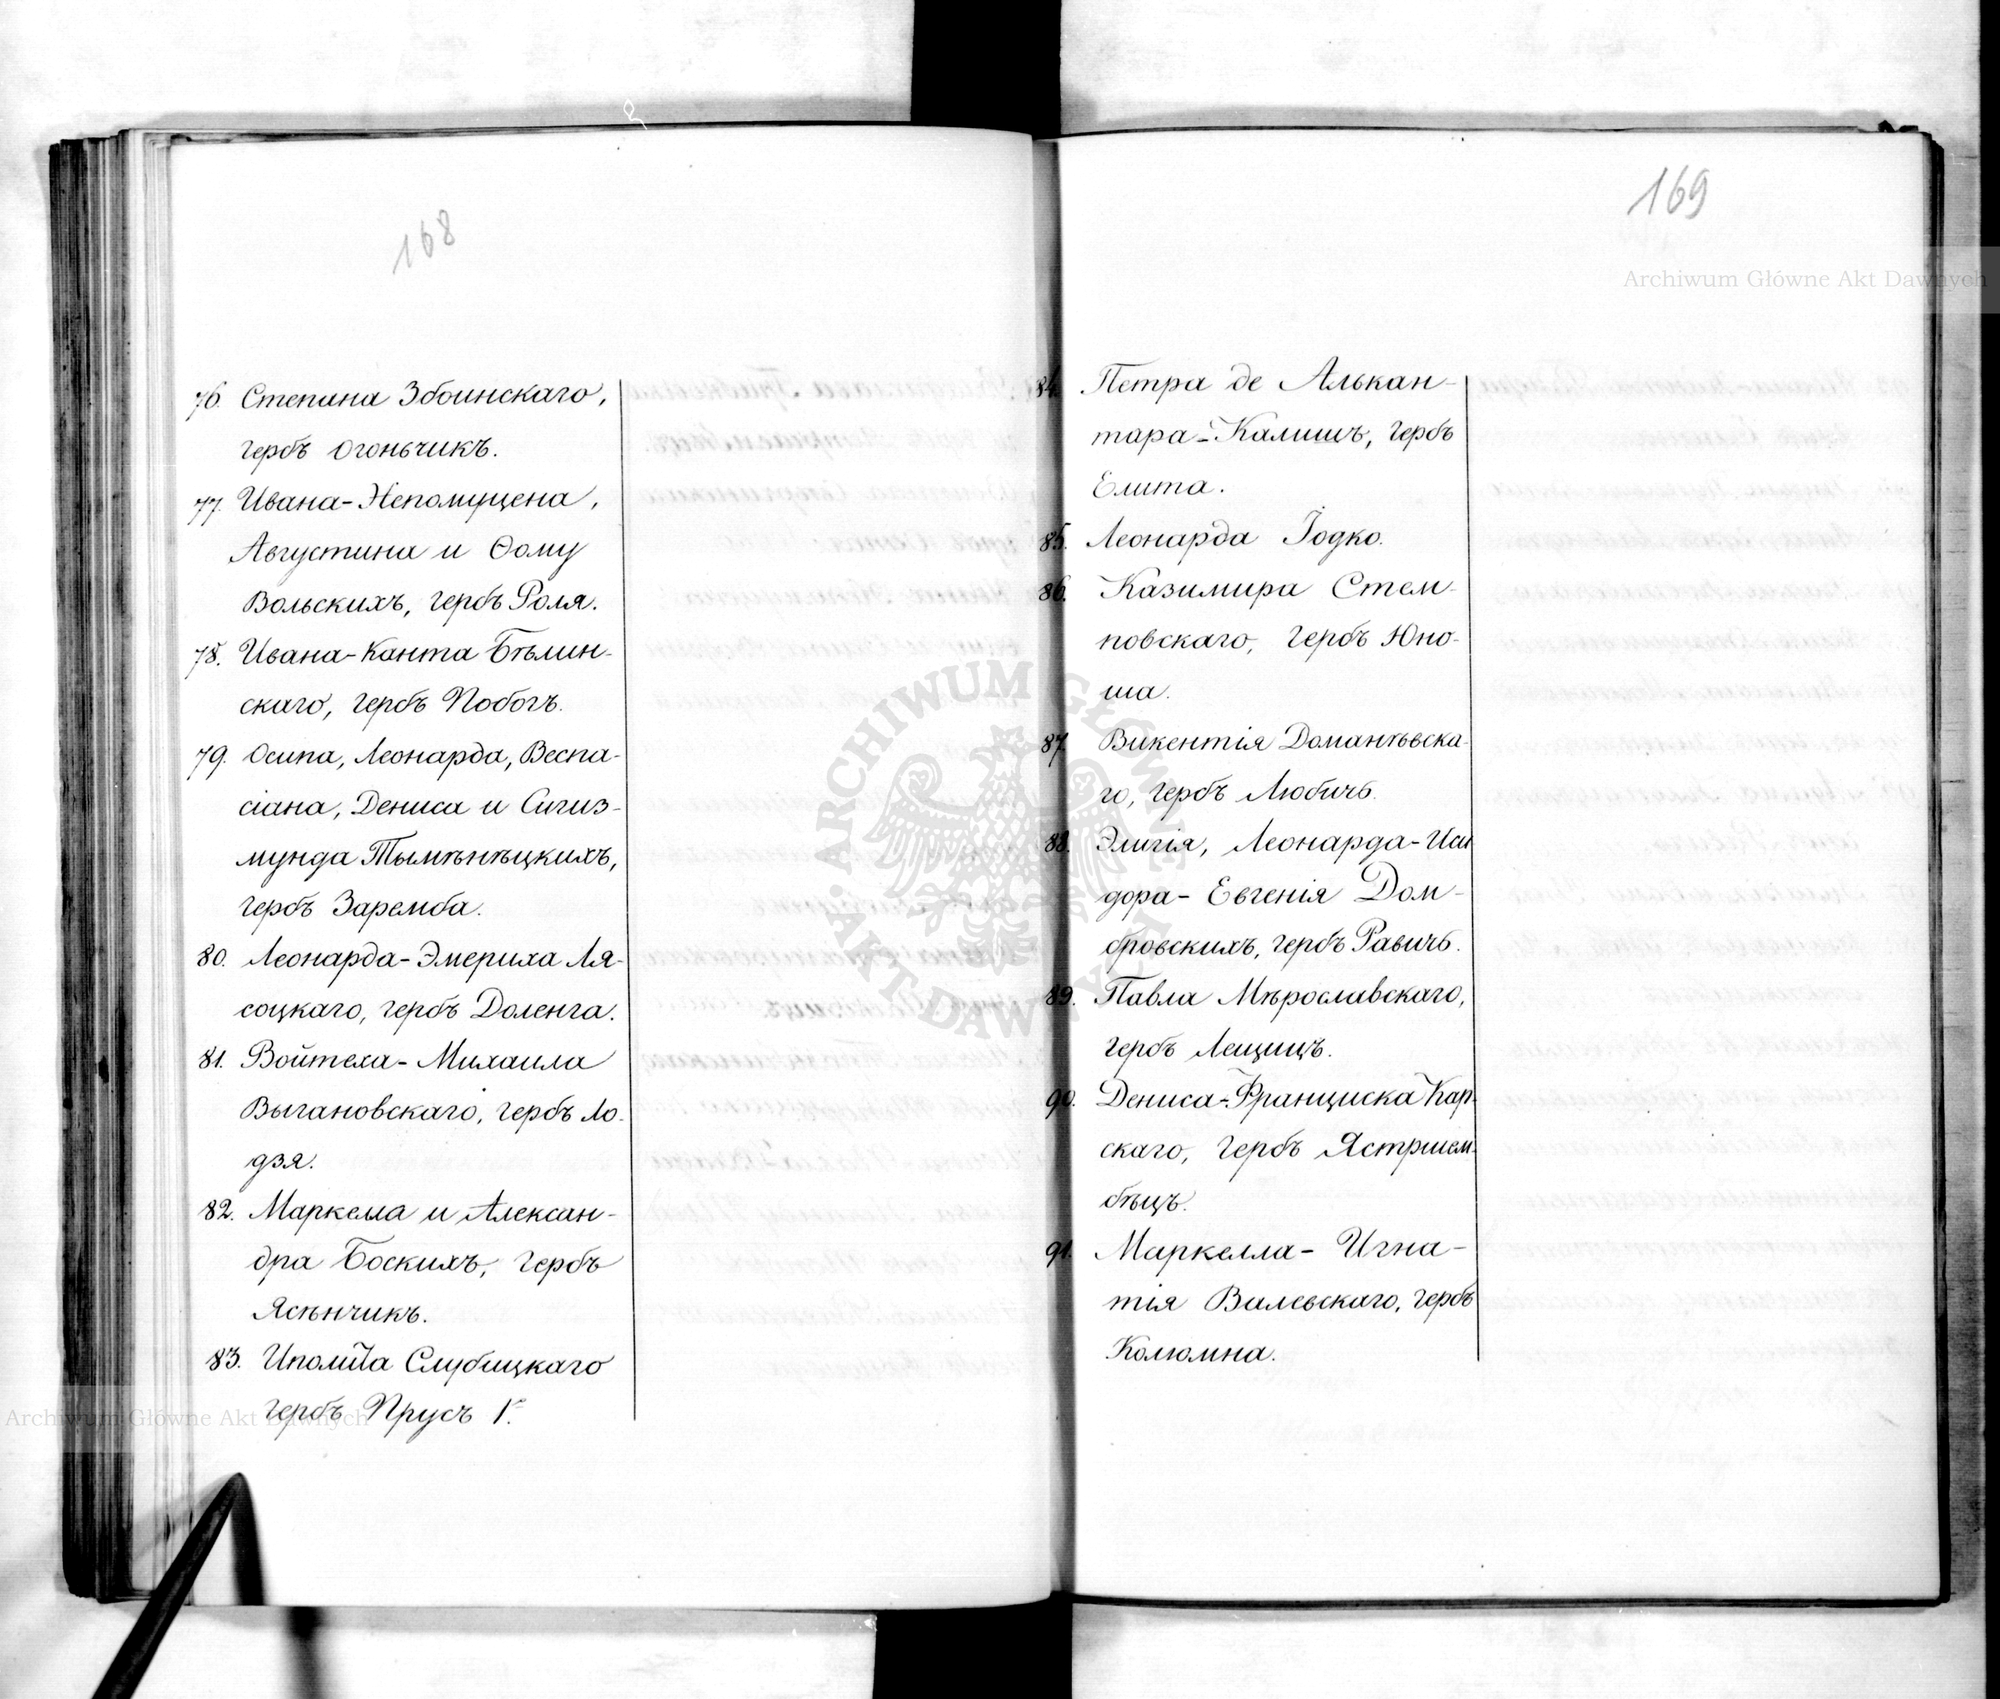 168
76. Степана Збоинскаго,
гербъ Огоньчикъ.
77. Ивана-Непомуцена,
Августина и Ѳому
Вольскихъ, гербъ Роля.
78. Ивана-Канта Бѣлин-
скаго, гербъ Побогъ.
79. Осипа, Леонарда, Веспа-
сіана, Дениса и Сигиз-
мунда Тымѣнѣцкихъ,
гербъ Заремба.
80. Леонарда-Эмериха Ля-
соцкаго, гербъ Доленга.
81. Войтеха-Михаила
Выгановскаго, гербъ Ло-
дзя.
82. Маркела и Алексан-
дра Боскихъ, гербъ
Ясѣнчикъ.
83. Иполита Слубицкаго
гербъ Прусъ 1.
169
84. Петра де Алькан-
тара-Калишъ, гербъ
Елита.
85. Леонарда Іодко.
86. Казимира Стем-
повскаго, гербъ Юно-
ша.
87. Викентія Доманѣвска-
го, гербъ Любичъ.
88. Элигія, Леонарда-Иси
дора-Евгенія Дом-
бровскихъ, гербъ Равичъ.
89. Павла Мѣрославскаго,
гербъ Лещицъ.
90. Дениса-Франциска Кар-
скаго, гербъ Ястршем-
бѣцъ.
91. Маркелла-Игна-
тія Вилевскаго, гербъ
Колюмна.
Archiwum Główne Akt Dawnych
ARCHIWUM GŁÓWNE AKT DAWNYCH
Archiwum Główne Akt Dawnych